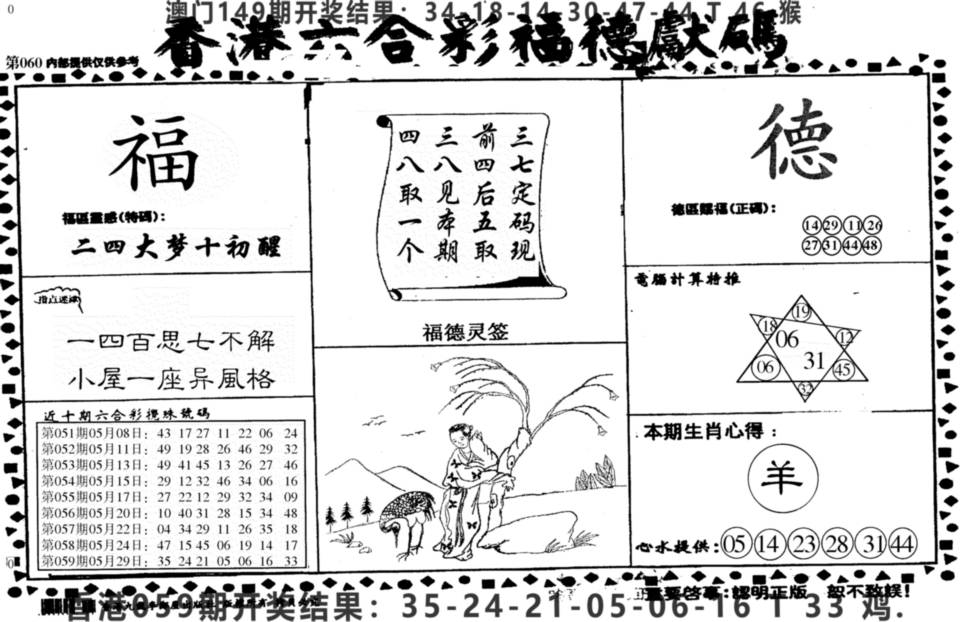 澳门149期开奖结果：34-18-14-30-47-44 T 46 猴
香港六合彩福德獻碼
第060 内部提供仅供参考
福
福區靈感(特碼)：
二四大梦十初醒
指点迷津
一四百思七不解
小屋一座异風格
近十期六合彩攪珠號碼
第051期05月08日：43 17 27 11 22 06 24
第052期05月11日：49 19 28 26 46 29 32
第053期05月13日：49 41 45 13 26 27 46
第054期05月15日：29 12 32 46 34 06 16
第055期05月17日：27 22 12 29 32 34 09
第056期05月20日：10 40 31 28 15 34 48
第057期05月22日：04 34 29 11 26 35 18
第058期05月24日：47 15 45 06 19 14 17
第059期05月29日：35 24 21 05 06 16 33
三七定码现
前四后五取
三八见本期
四八取一个
福德灵签
德
德區賜福(正碼)：
14 29 11 26
27 31 44 48
電腦計算特推
19
18 06 12
06 31 45
32
本期生肖心得：
羊
心水提供：05 14 23 28 31 44
重要啓事：認明正版 恕不致誤！
香港059期开奖结果：35-24-21-05-06-16 T 33 鸡.